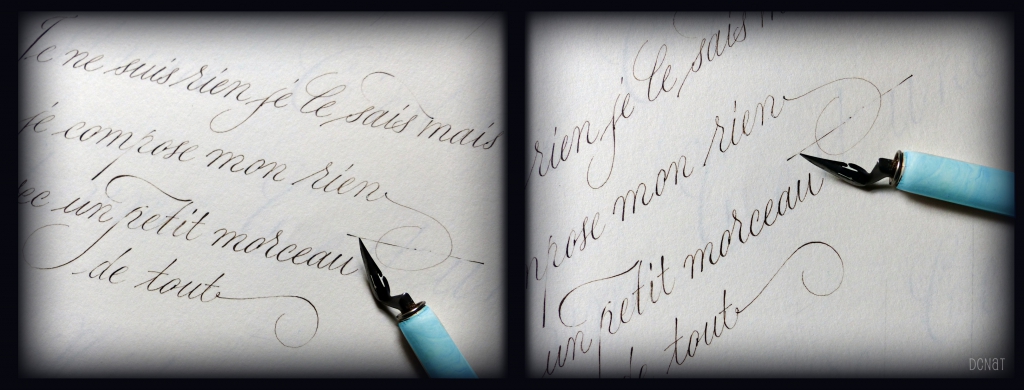 Je ne suis rien je le sais mais
je compose mon rien
ec un petit morceau
de tout
rien je le sais m
npose mon rien
un petit morceau
de tout
DCNAT